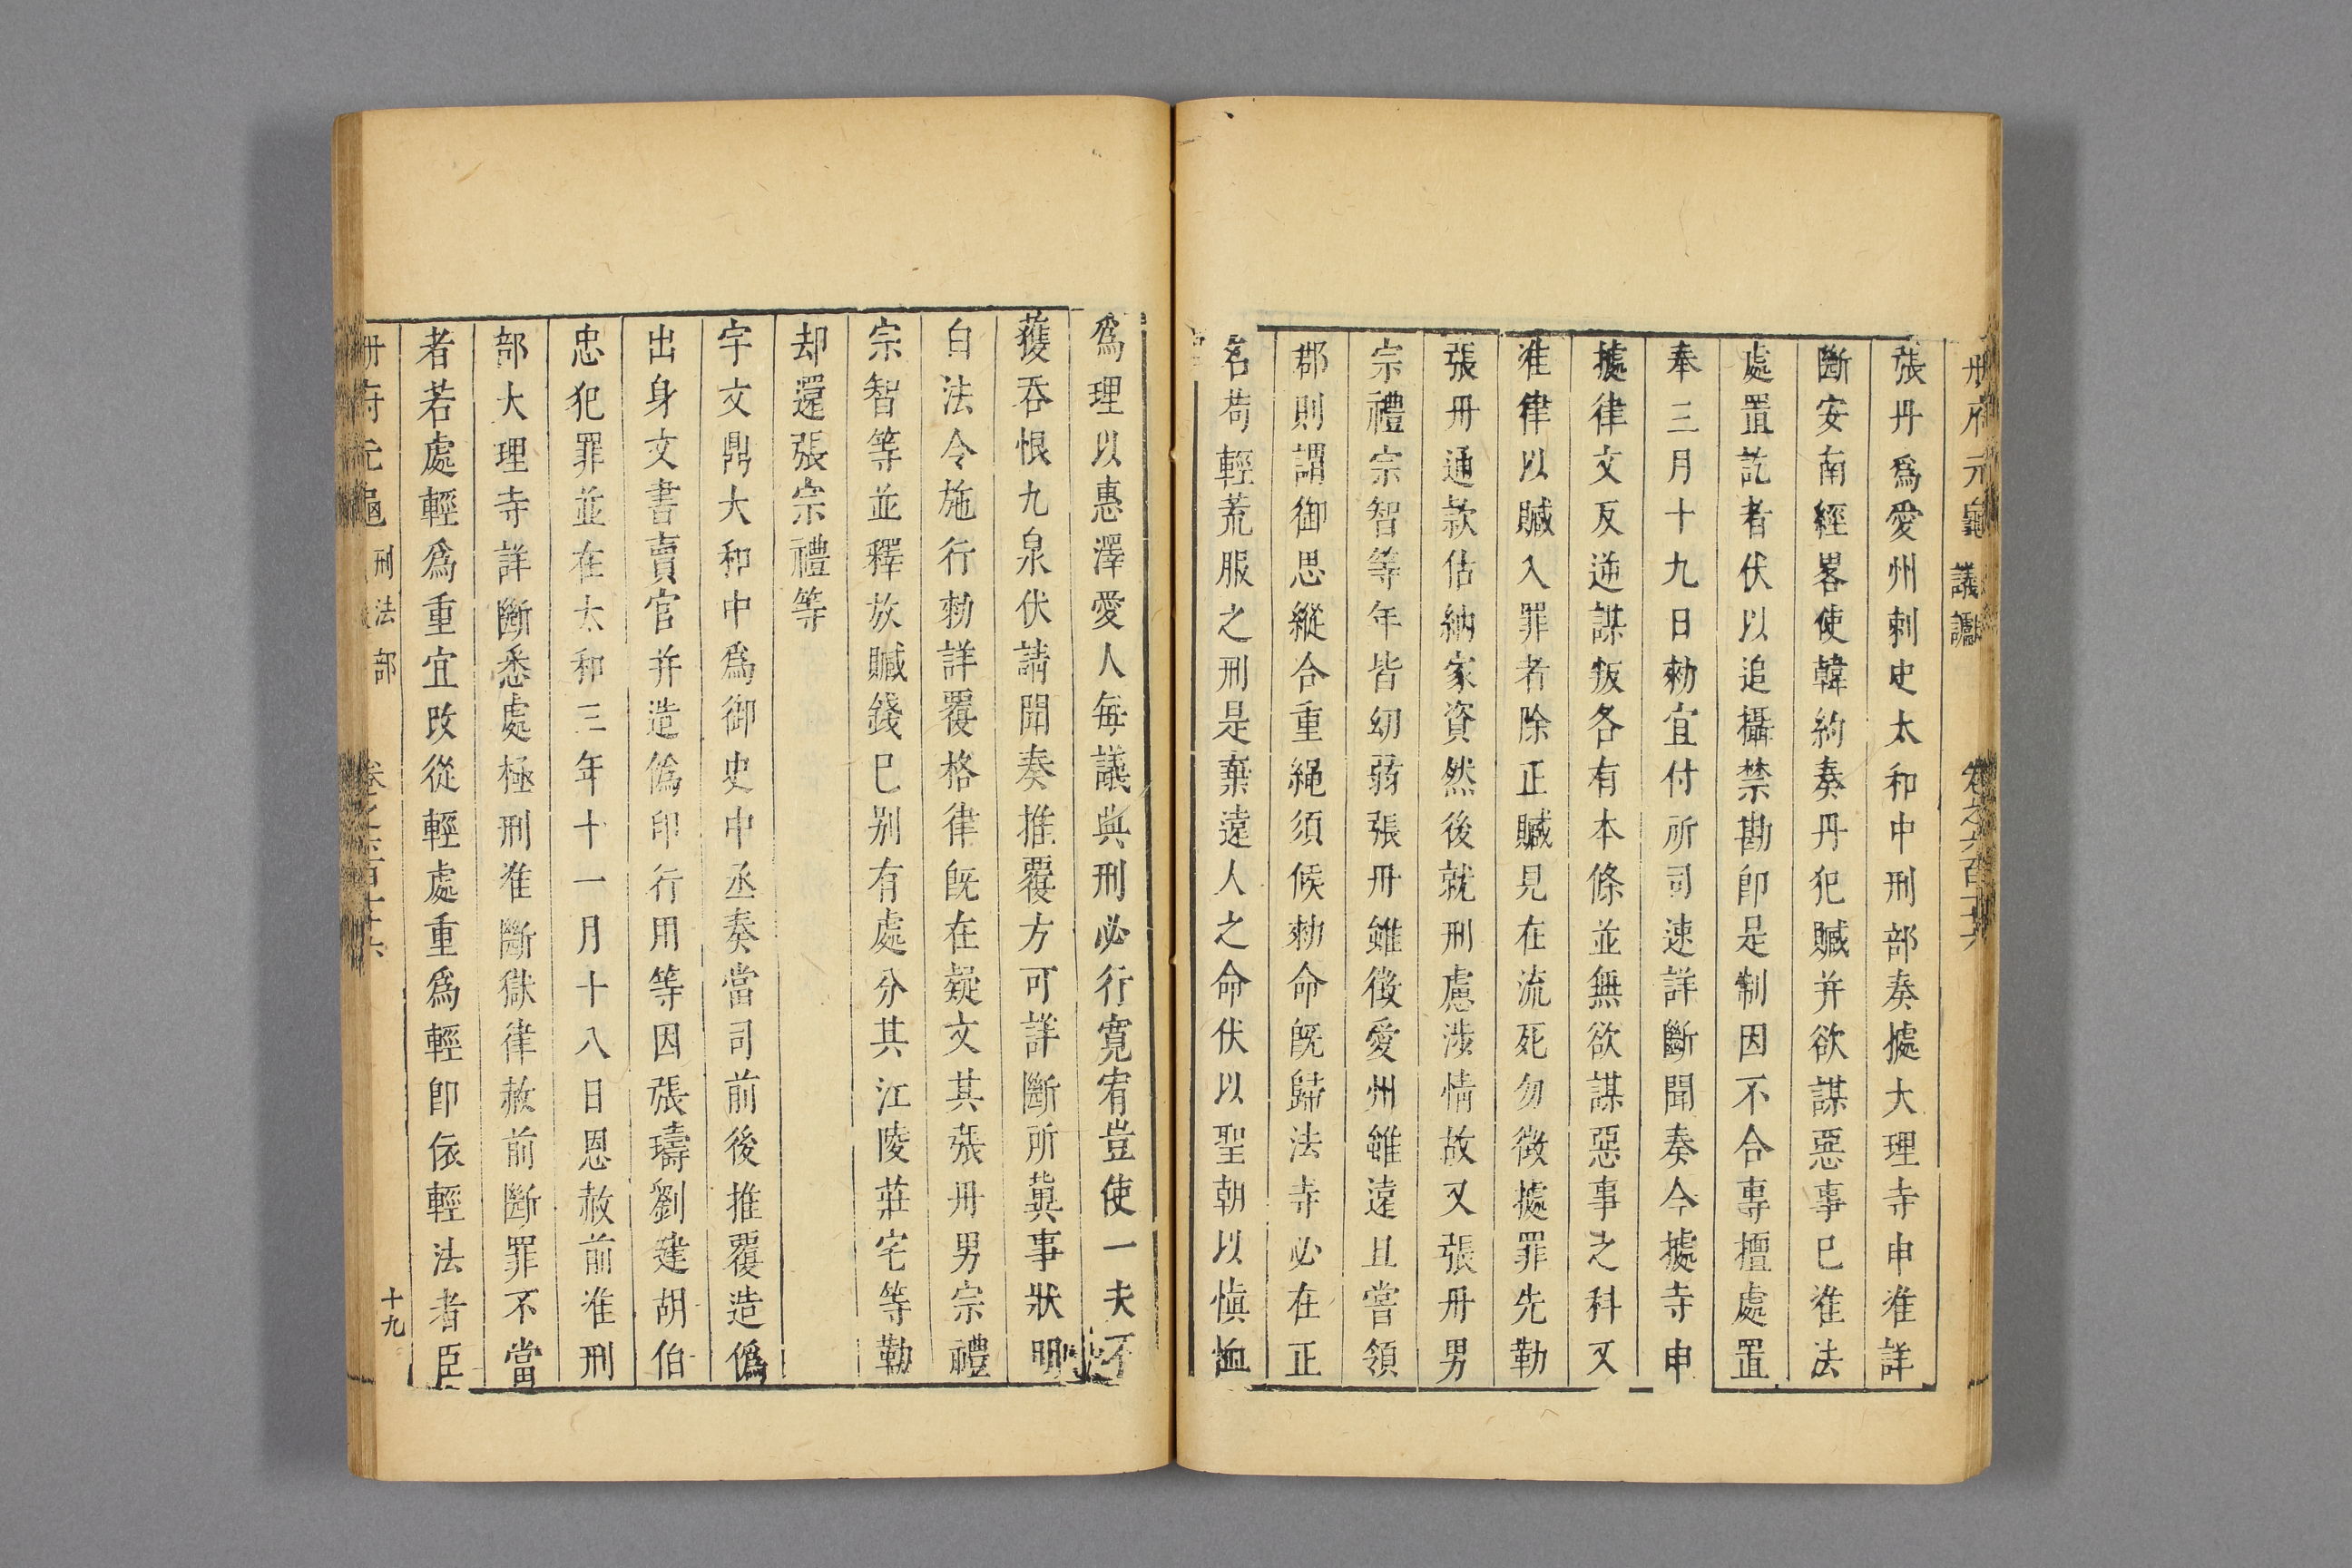 冊府元龜 議讞 卷之六百十六
張丹爲愛州刺史太和中刑部奏據大理寺申准詳
斷安南經畧使韓約奏丹犯贓并欲謀惡事巳准法
處置訖者伏以追攝禁勘卽是制因不合專擅處置
奉三月十九日勑宜付所司速詳斷聞奏今據寺申
據律文反逆謀叛各有本條並無欲謀惡事之科又
准律以贓入罪者除正贓見在流死勿徵據罪先勒
張冊通款估納家資然後就刑慮涉情故又張冊男
宗禮宗智等年皆幼弱張冊雖徵愛州雖遠且嘗領
郡則謂御思縱合重繩須候勑命旣歸法寺必在正
名苟輕荒服之刑是棄遠人之命伏以聖朝以愼恤
爲理以惠澤愛人每議與刑必行寬宥豈使一夫不
獲吞恨九泉伏請聞奏推覆方可詳斷所冀事狀明
白法令施行勑詳覆格律旣在疑文其張冊男宗禮
宗智等並釋放贓錢巳別有處分其江陵莊宅等勒
却還張宗禮等
宇文鼎大和中爲御史中丞奏當司前後推覆造僞
出身文書賣官并造僞印行用等因張璹劉建胡伯
忠犯罪並在太和三年十一月十八日恩赦前准刑
部大理寺詳斷悉處極刑准斷獄律赦前斷罪不當
者若處輕爲重宜改從輕處重爲輕卽依輕法者臣
冊府元龜 刑法部 卷之六百十六 十九